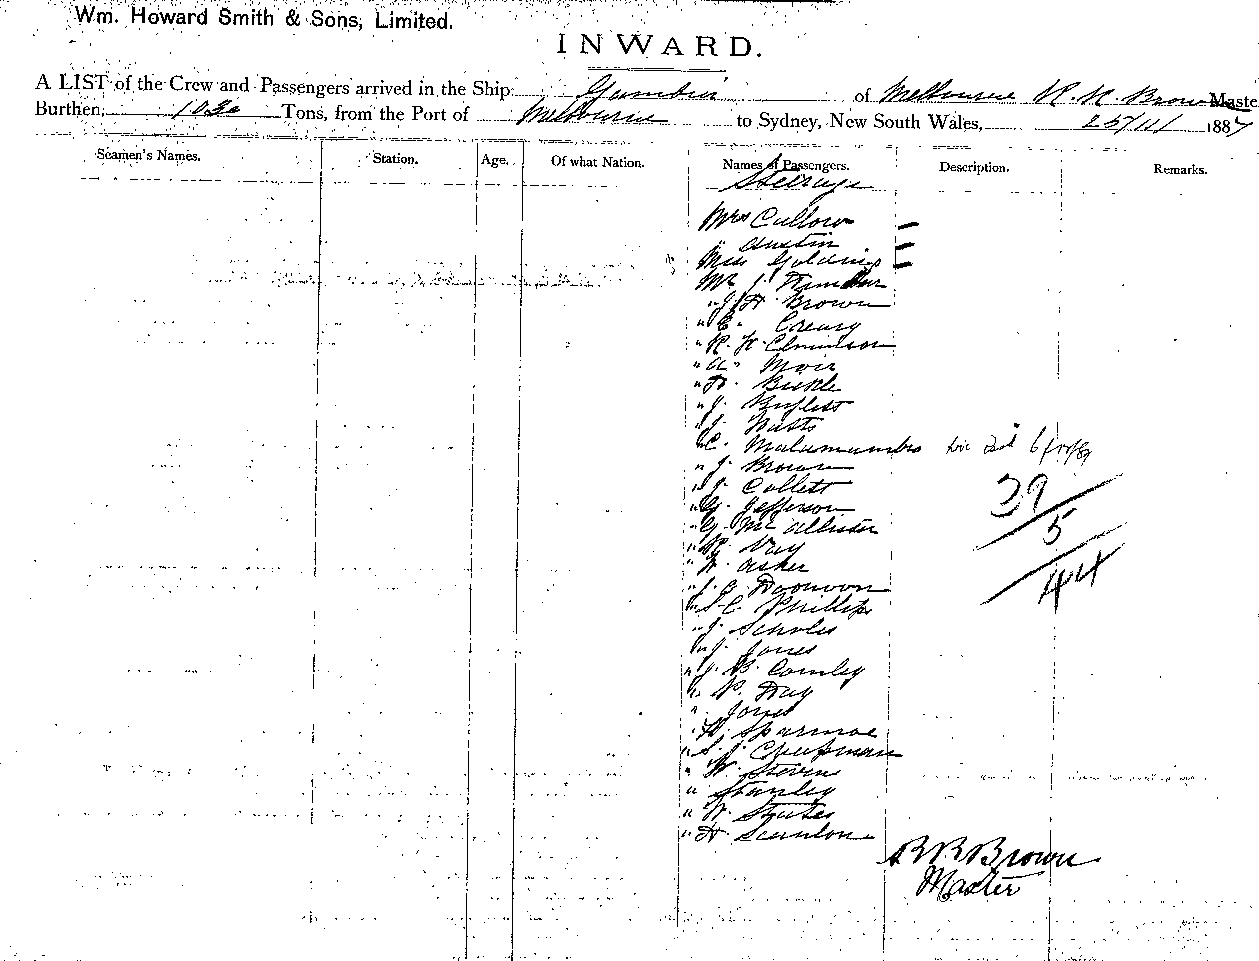 Wm. Howard Smith & Sons, Limited.
INWARD.
A LIST of the Crew and Passengers arrived in the Ship Gambier of Melbourne R. R. Brown Master
Burthen, 1030 Tons, from the Port of Melbourne to Sydney, New South Wales, 25/11/ 1887
Seamen's Names. Station. Age. Of what Nation. Names of Passengers. Description. Remarks.
Steerage
Mrs Callow
" Austin
Miss Golding
Mr J.
" J H Brown
" C. Creary
" R. H.
" A. Moir
" H. Bickle
" J.
" J. Watts
" C. 6/10/89
" J. Brown
" J. Collett
" G. Jefferson
" G. McAllister
" Day
" W. Asker
" J.
" S. C. Phillips
" J. Scholes
" J. Jones
" J. B. Comley
" P. Day
" Jones
" H.
" S. J. Chapman
" W. Stevens
" Stanley
" W.
" H. Scanlon
39
5
44
R R Brown
Master